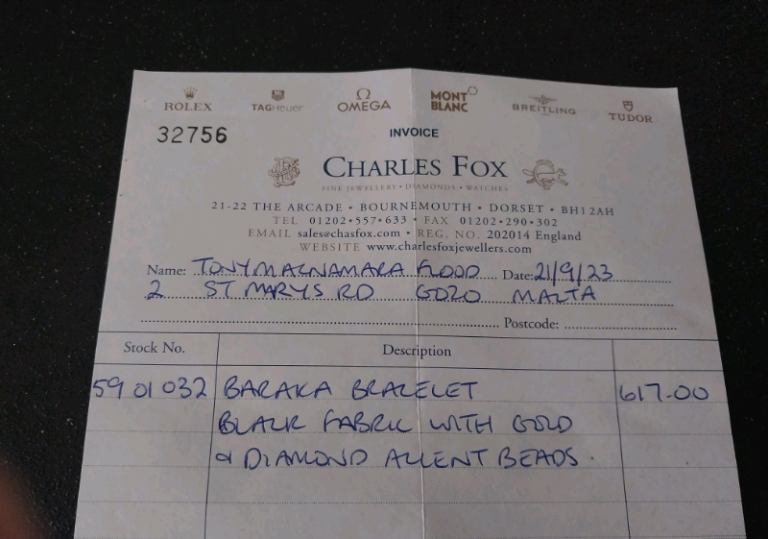 ROLEX TAGHeuer OMEGA MONT BLANC BREITLING TUDOR
32756
INVOICE
CHARLES FOX
FINE JEWELLERY • DIAMONDS • WATCHES
21-22 THE ARCADE • BOURNEMOUTH • DORSET • BH1 2AH
TEL 01202•557•633 • FAX 01202•290•302
EMAIL sales@chasfox.com • REG. NO. 202014 England
WEBSITE www.charlesfoxjewellers.com
Name: TONY MACNAMARA FLOOD Date: 21/9/23
2 ST MARYS RD GOZO MALTA
Postcode:
Stock No. Description
5901032 BARAKA BRACELET 617.00
BLACK FABRIC WITH GOLD
& DIAMOND ACCENT BEADS.